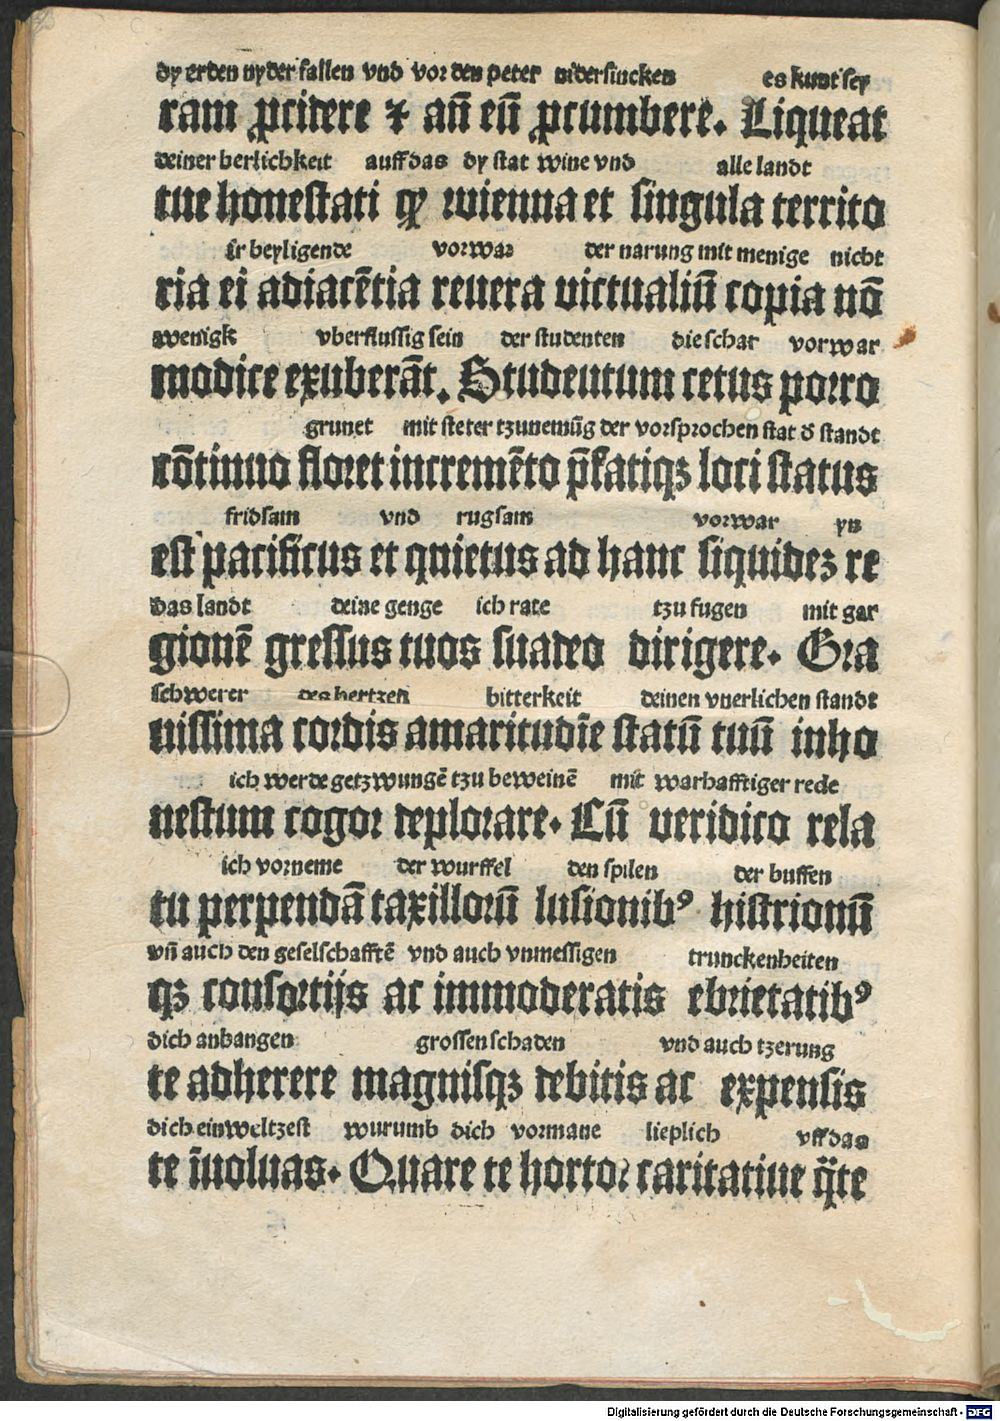 dy erden nyder fallen vnd vor den peter nidersincken es kunt sey
ram ꝓcidere ⁊ añ eũ ꝓcumbere. Liqueat
deiner herlichkeit auff das dy stat wine vnd alle landt
tue honestati ꝙ wienna et singula territo
ir beyligende vorwar der narung mit menige nicht
ria ei adiacẽtia reuera victualiũ copia nõ
wenigk vberflussig sein der studenten die schar vorwar
modice exuberãt. Studentum cetus porro
grunet mit steter tzunemũg der vorsprochen stat d̕ standt
cõtinuo floret incremẽto p̃fatiqꝫ loci status
fridsam vnd rugsam vorwar yn
est pacificus et quietus ad hanc siquidez re
das landt deine genge ich rate tzu fugen mit gar
gionẽ gressus tuos suadeo dirigere. Gra
schwerer des hertzen bitterkeit deinen vnerlichen standt
uissima cordis amaritudĩe statũ tuũ inho
ich werde getzwungẽ tzu beweinẽ mit warhafftiger rede
nestum cogor deplorare. Cũ veridico rela
ich vorneme der wurffel den spilen der buffen
tu perpendã taxillorũ lusionibꝰ histrionũ
vñ auch den geselschafftẽ vnd auch vnmessigen trunckenheiten
qꝫ consortijs ac immoderatis ebrietatibꝰ
dich anhangen grossen schaden vnd auch tzerung
te adherere magnisqꝫ debitis ac expensis
dich einweltzest wurumb dich vormane lieplich vff das
te ĩuoluas. Quare te hortor caritatiue q̃te
Digitalisierung gefördert durch die Deutsche Forschungsgemeinschaft - DFG